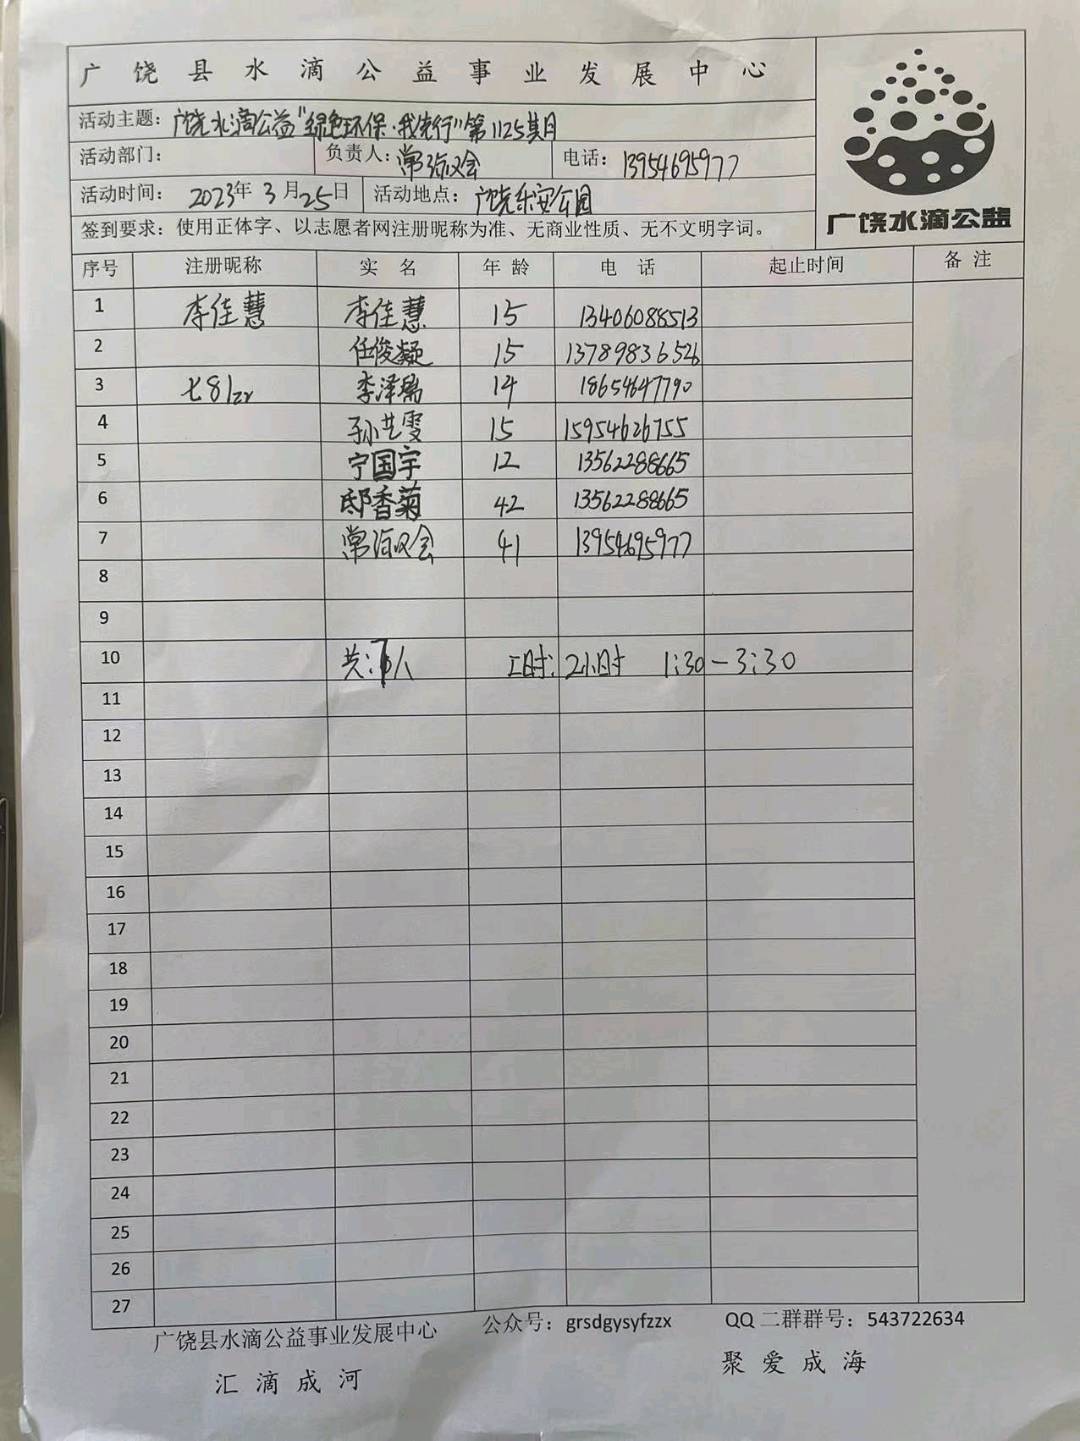 广饶县水滴公益事业发展中心
活动主题：广饶水滴公益"绿色环保·我先行"第1125期
活动部门： 负责人：常海汉会 电话：13954695977
活动时间：2023年3月25日 活动地点：广饶乐安公园
签到要求：使用正体字、以志愿者网注册昵称为准、无商业性质、无不文明字词。
广饶水滴公益
序号 注册昵称 实名 年龄 电话 起止时间 备注
1 李佳慧 李佳慧 15 13406088513
2 任俊凝 15 13789836526
3 七8lzr 李泽瑞 14 18654647790
4 孙艺雯 15 15954626755
5 宁国宇 12 13562288665
6 邸香菊 42 13562288665
7 常海汉会 41 13954695977
8
9
10 共：7人 工时：2小时 1:30-3:30
11
12
13
14
15
16
17
18
19
20
21
22
23
24
25
26
27
广饶县水滴公益事业发展中心 公众号：grsdgysyfzzx QQ二群群号：543722634
汇滴成河 聚爱成海